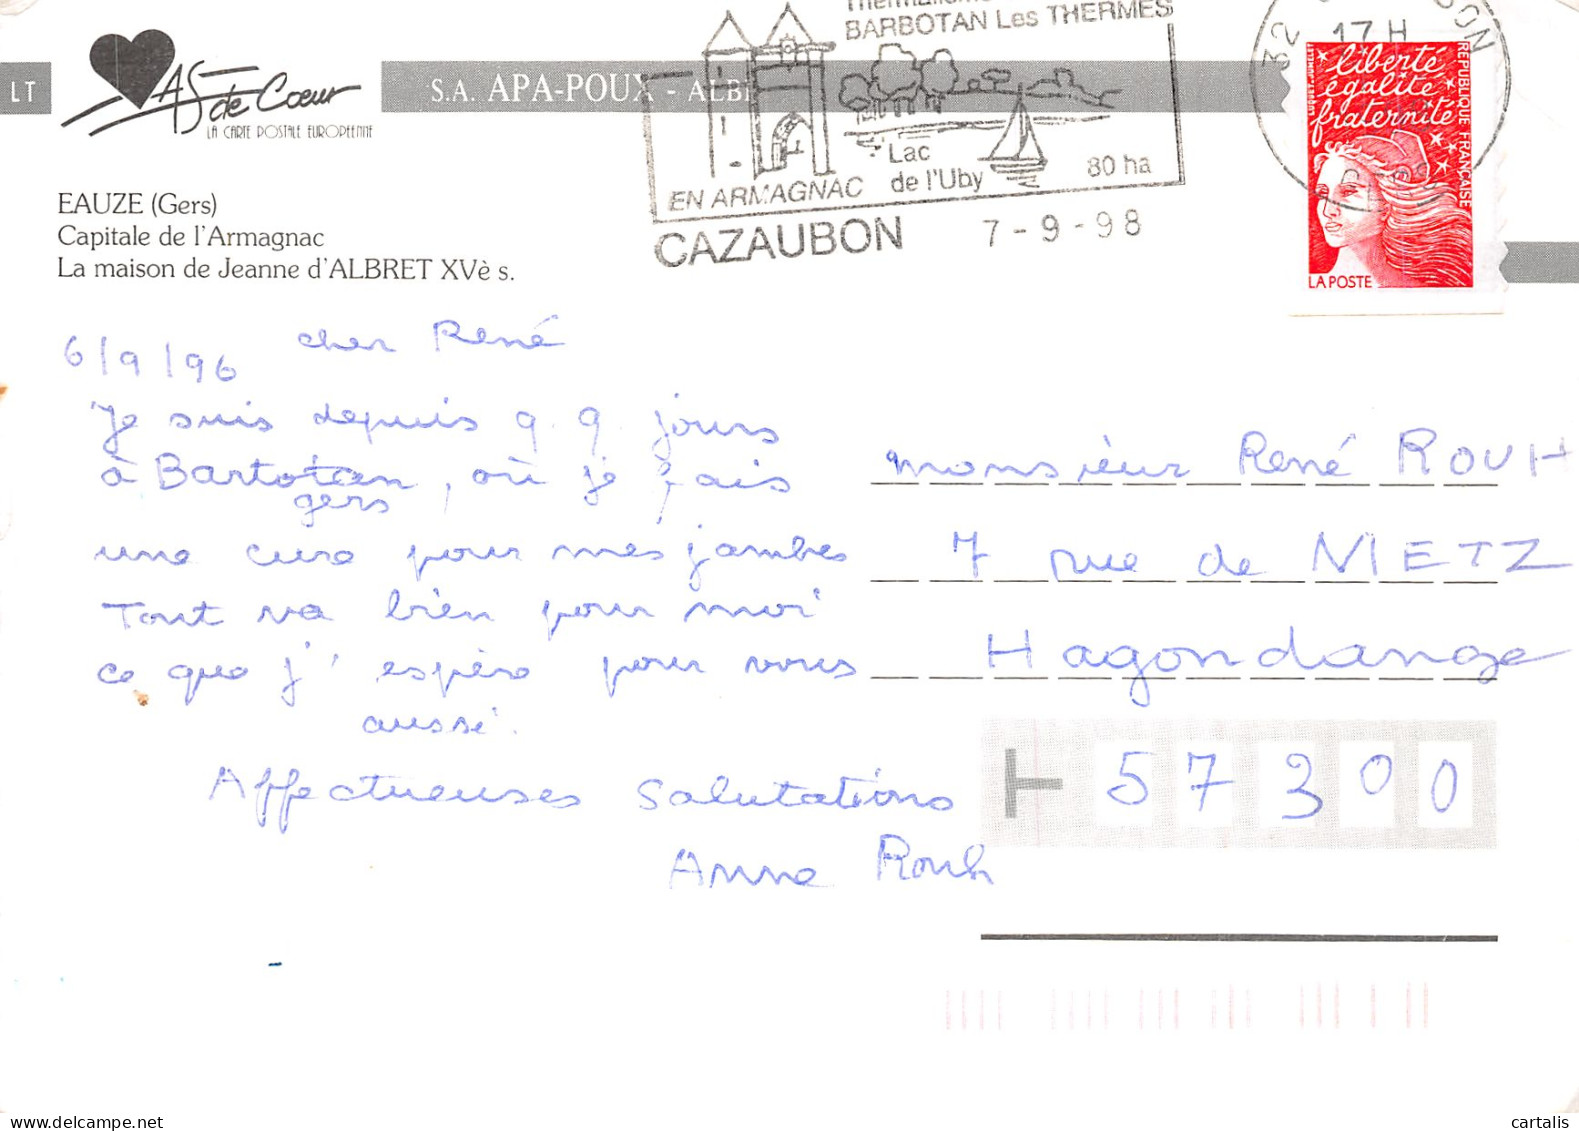 LT
AS de Cœur
LA CARTE POSTALE EUROPÉENNE
S.A. APA-POUX - ALBI
BARBOTAN Les THERMES
Lac
de l'Uby
80 ha
EN ARMAGNAC
CAZAUBON 7-9-98
32
17 H
liberté
égalité
fraternité
RÉPUBLIQUE FRANÇAISE
LA POSTE
EAUZE (Gers)
Capitale de l'Armagnac
La maison de Jeanne d'ALBRET XVè s.
6/9/96 cher René
Je suis depuis q.q. jours
à Bartotan, où je fais
gers
une cure pour mes jambes
Tout va bien pour moi
ce que j'espère pour vous
aussi.
Affectueuses Salutations
Anne Rouh
monsieur René ROUH
7 rue de METZ
Hagondange
57300
cartalis
www.delcampe.net